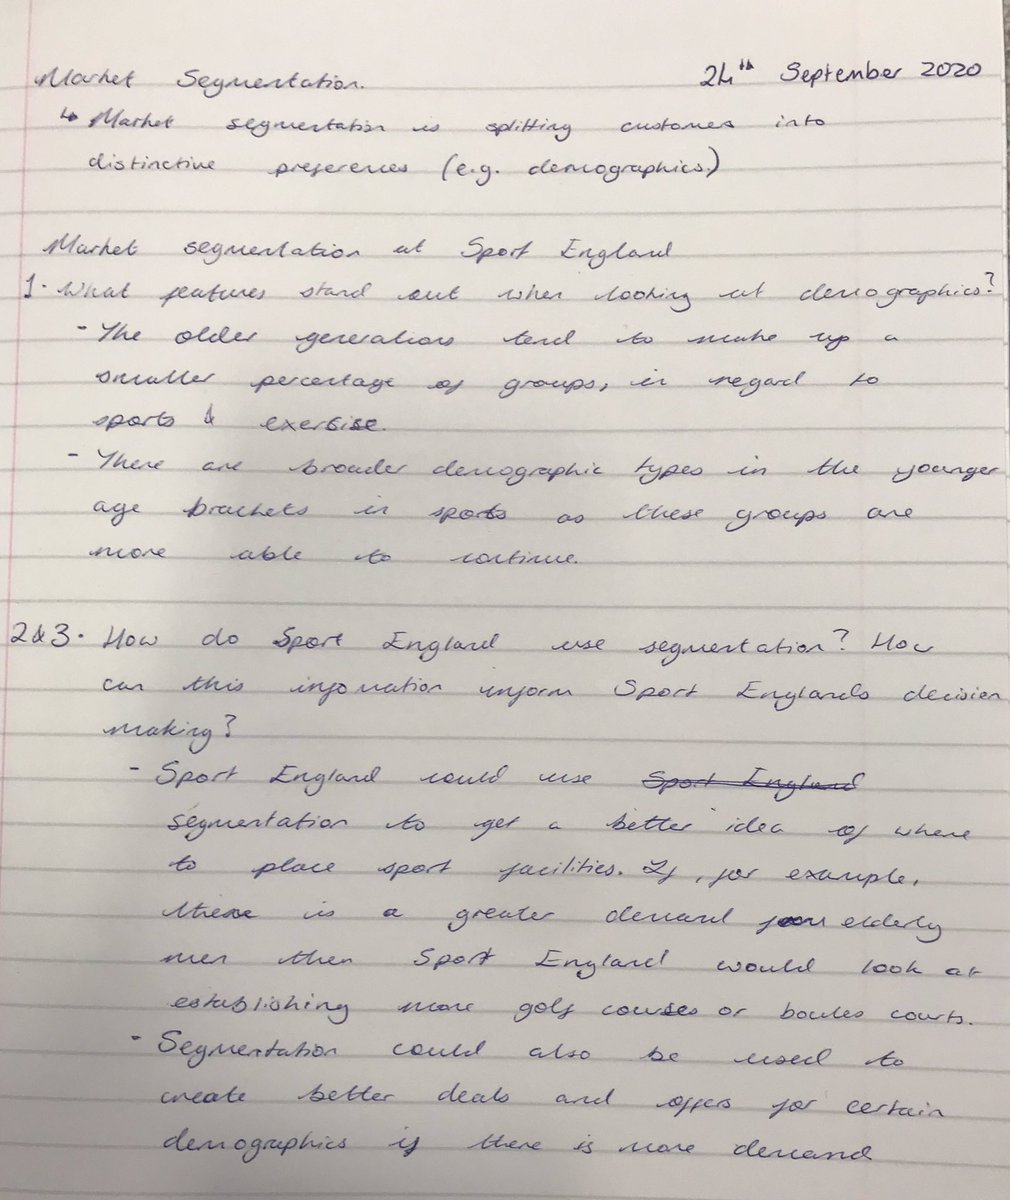 Market Segmentation. 24th September 2020
↳ Market segmentation is splitting customers into
distinctive preferences (e.g. demographics.)
Market segmentation at Sport England
1. What features stand out when looking at demographics?
- The older generations tend to make up a
smaller percentage of groups, in regard to
sports & exercise.
- There are broader demographic types in the younger
age brackets in sports as these groups are
more able to continue.
2&3. How do Sport England use segmentation? How
can this information inform Sport Englands decision
making?
- Sport England could use Sport England
segmentation to get a better idea of where
to place sport facilities. If, for example,
there is a greater demand for elderly
men then Sport England would look at
establishing more golf courses or boules courts.
- Segmentation could also be used to
create better deals and offers for certain
demographics if there is more demand